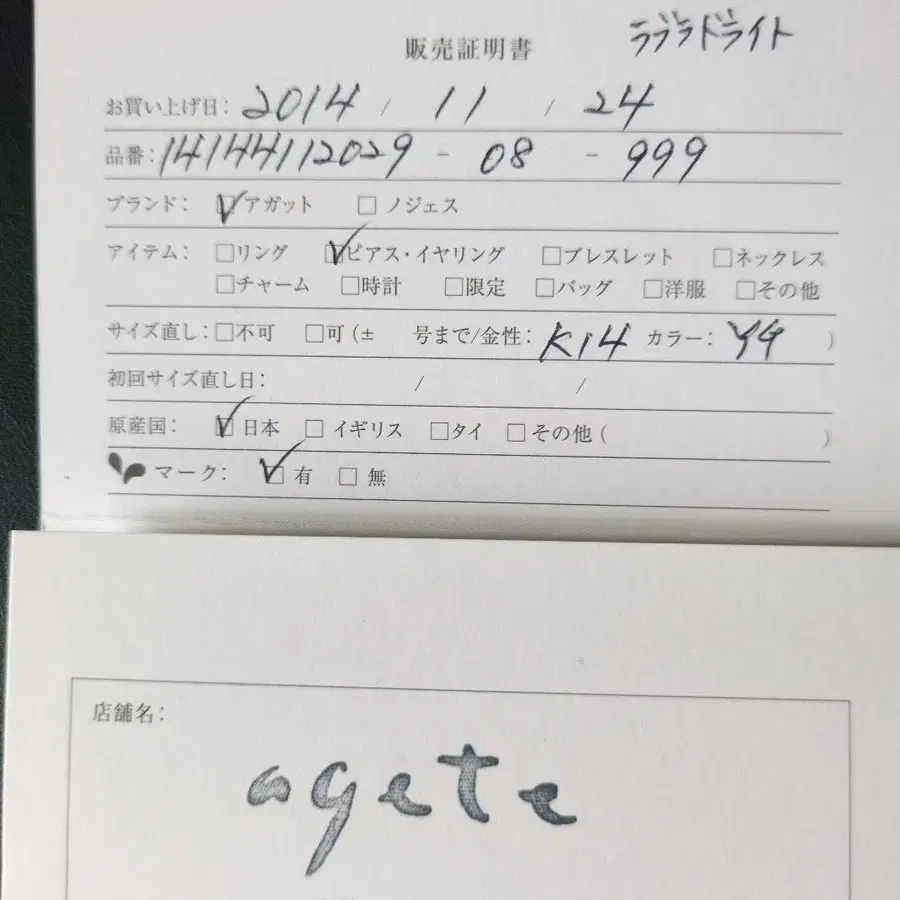 ラブラドライト
販売証明書
お買い上げ日: 2014 / 11 / 24
品番: 14144112029 - 08 - 999
ブランド: ☑アガット □ノジェス
アイテム: □リング ☑ピアス・イヤリング □ブレスレット □ネックレス
□チャーム □時計 □限定 □バッグ □洋服 □その他
サイズ直し: □不可 □可 (± 号まで/金性: K14 カラー: YG )
初回サイズ直し日: / /
原産国: ☑日本 □イギリス □タイ □その他 ( )
マーク: ☑有 □無
店舗名:
agete